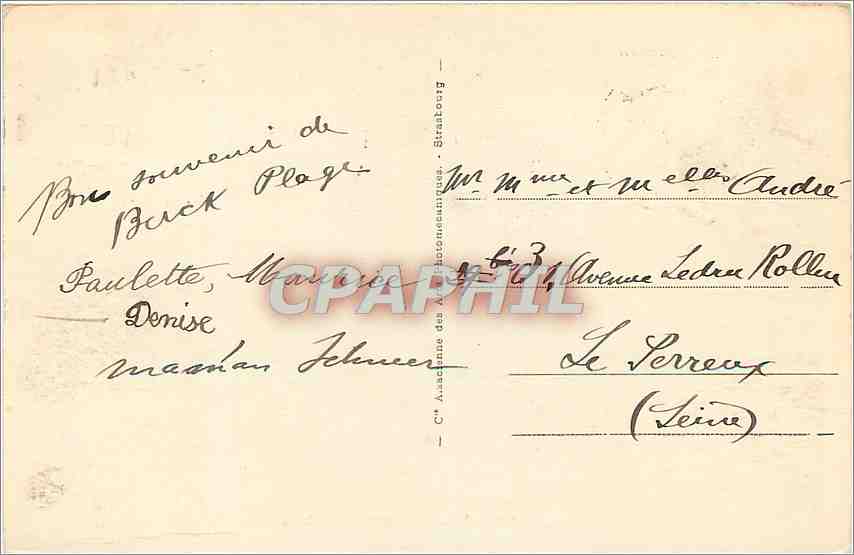 Bon souvenir de
Berck Plage.
Paulette, Maurice
Denise
maman
— Cie Alsacienne des Arts Photomécaniques. - Strasbourg —
Mr Mme et Melles André
bis Avenue Ledru Rollin
Le Perreux
(Seine)
CPAPHIL